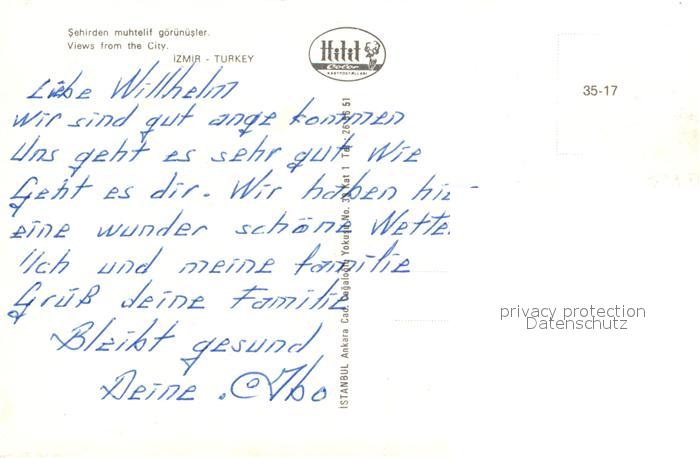 Şehirden muhtelif görünüşler.
Views from the City.
İZMİR - TURKEY
Hitit
Color
KARTPOSTALLARI
35-17
Liebe Willhelm
wir sind gut ange kommen
Uns geht es sehr gut Wie
Geht es dir. Wir haben hie-
eine wunder schöne Wetter
Ich und meine familie
Grüß deine Familie
Bleibt gesund
Deine
İSTANBUL Ankara Cad. Cağaloğlu Yokuşu No. Kat 1 Tel:
privacy protection
Datenschutz